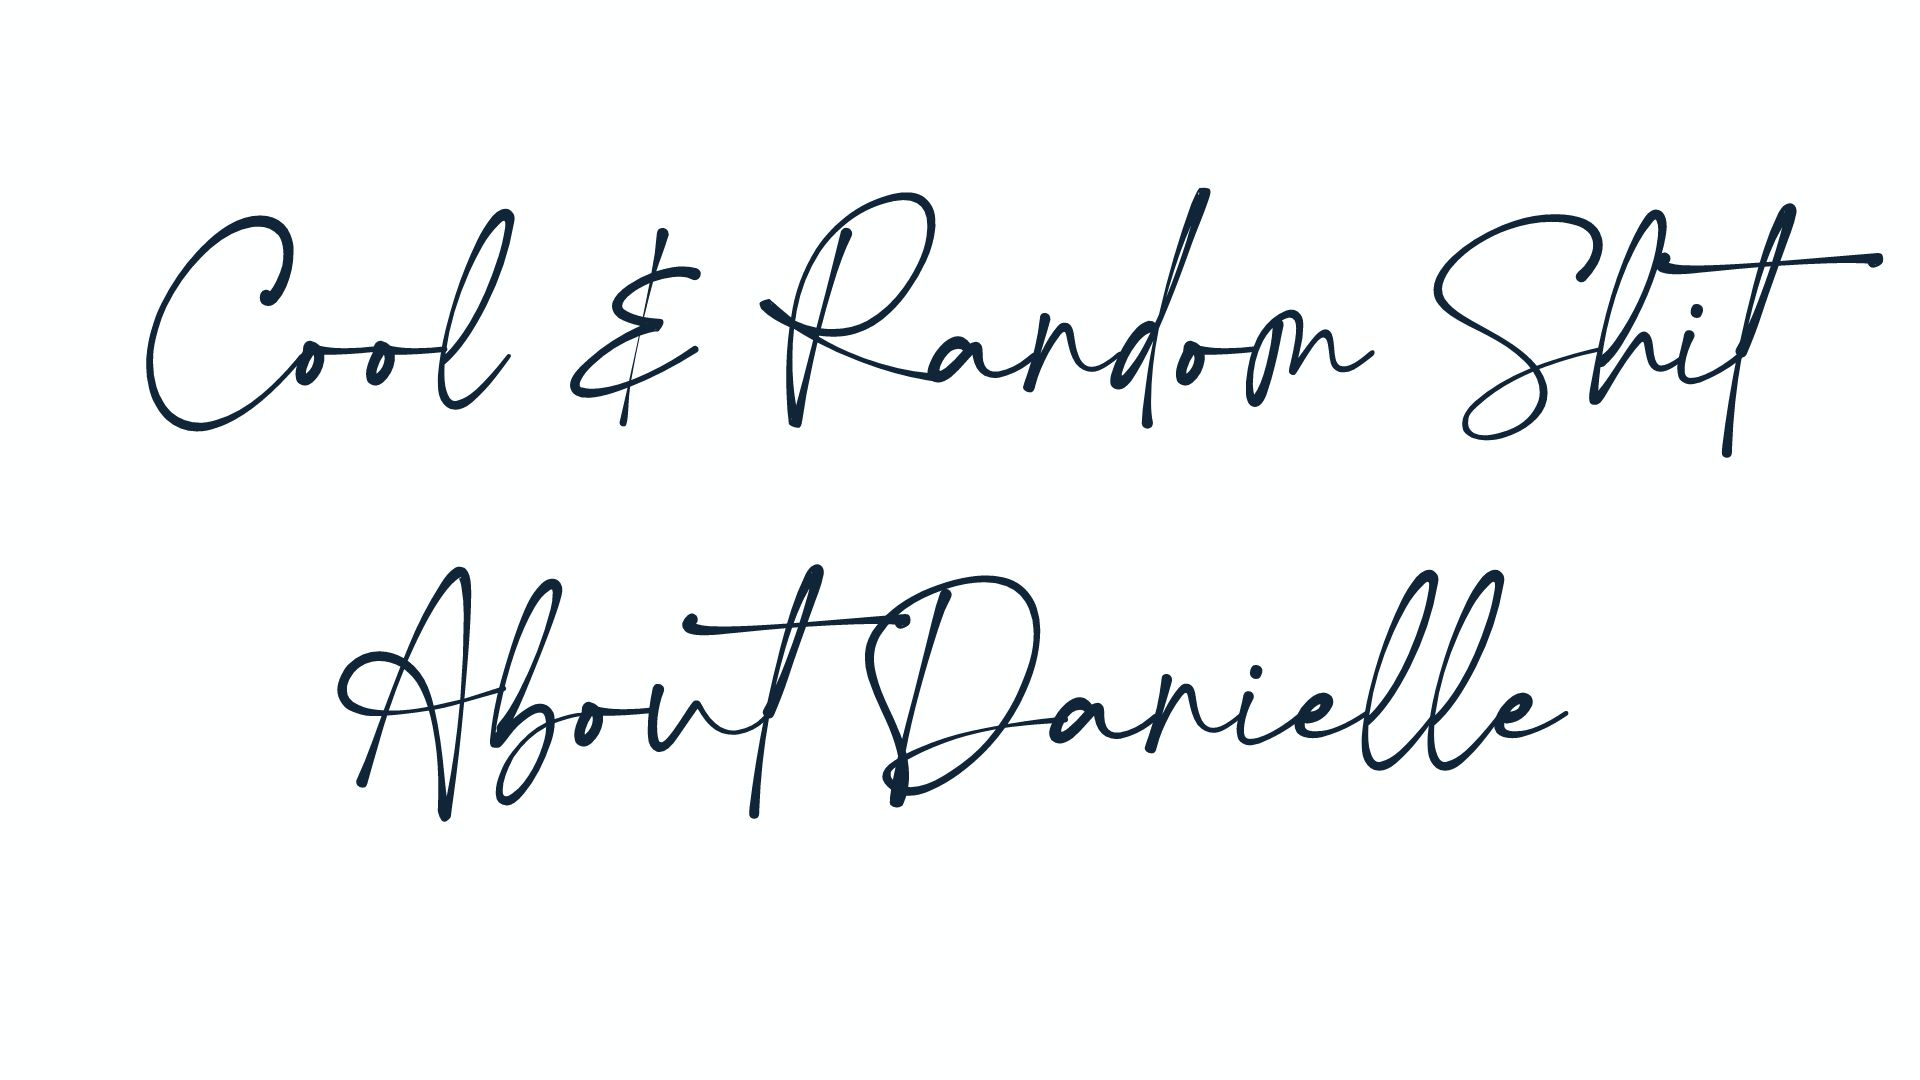 Cool & Random Shit
About Danielle